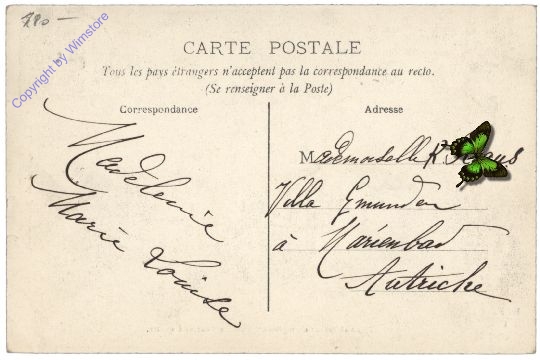 280 —
Copyright by Wimstore
CARTE POSTALE
Tous les pays étrangers n'acceptent pas la correspondance au recto.
(Se renseigner à la Poste)
Correspondance
Adresse
Madeleine
Marie Louise
Mademoiselle K
Villa Gmunden
à Marienbad
Autriche